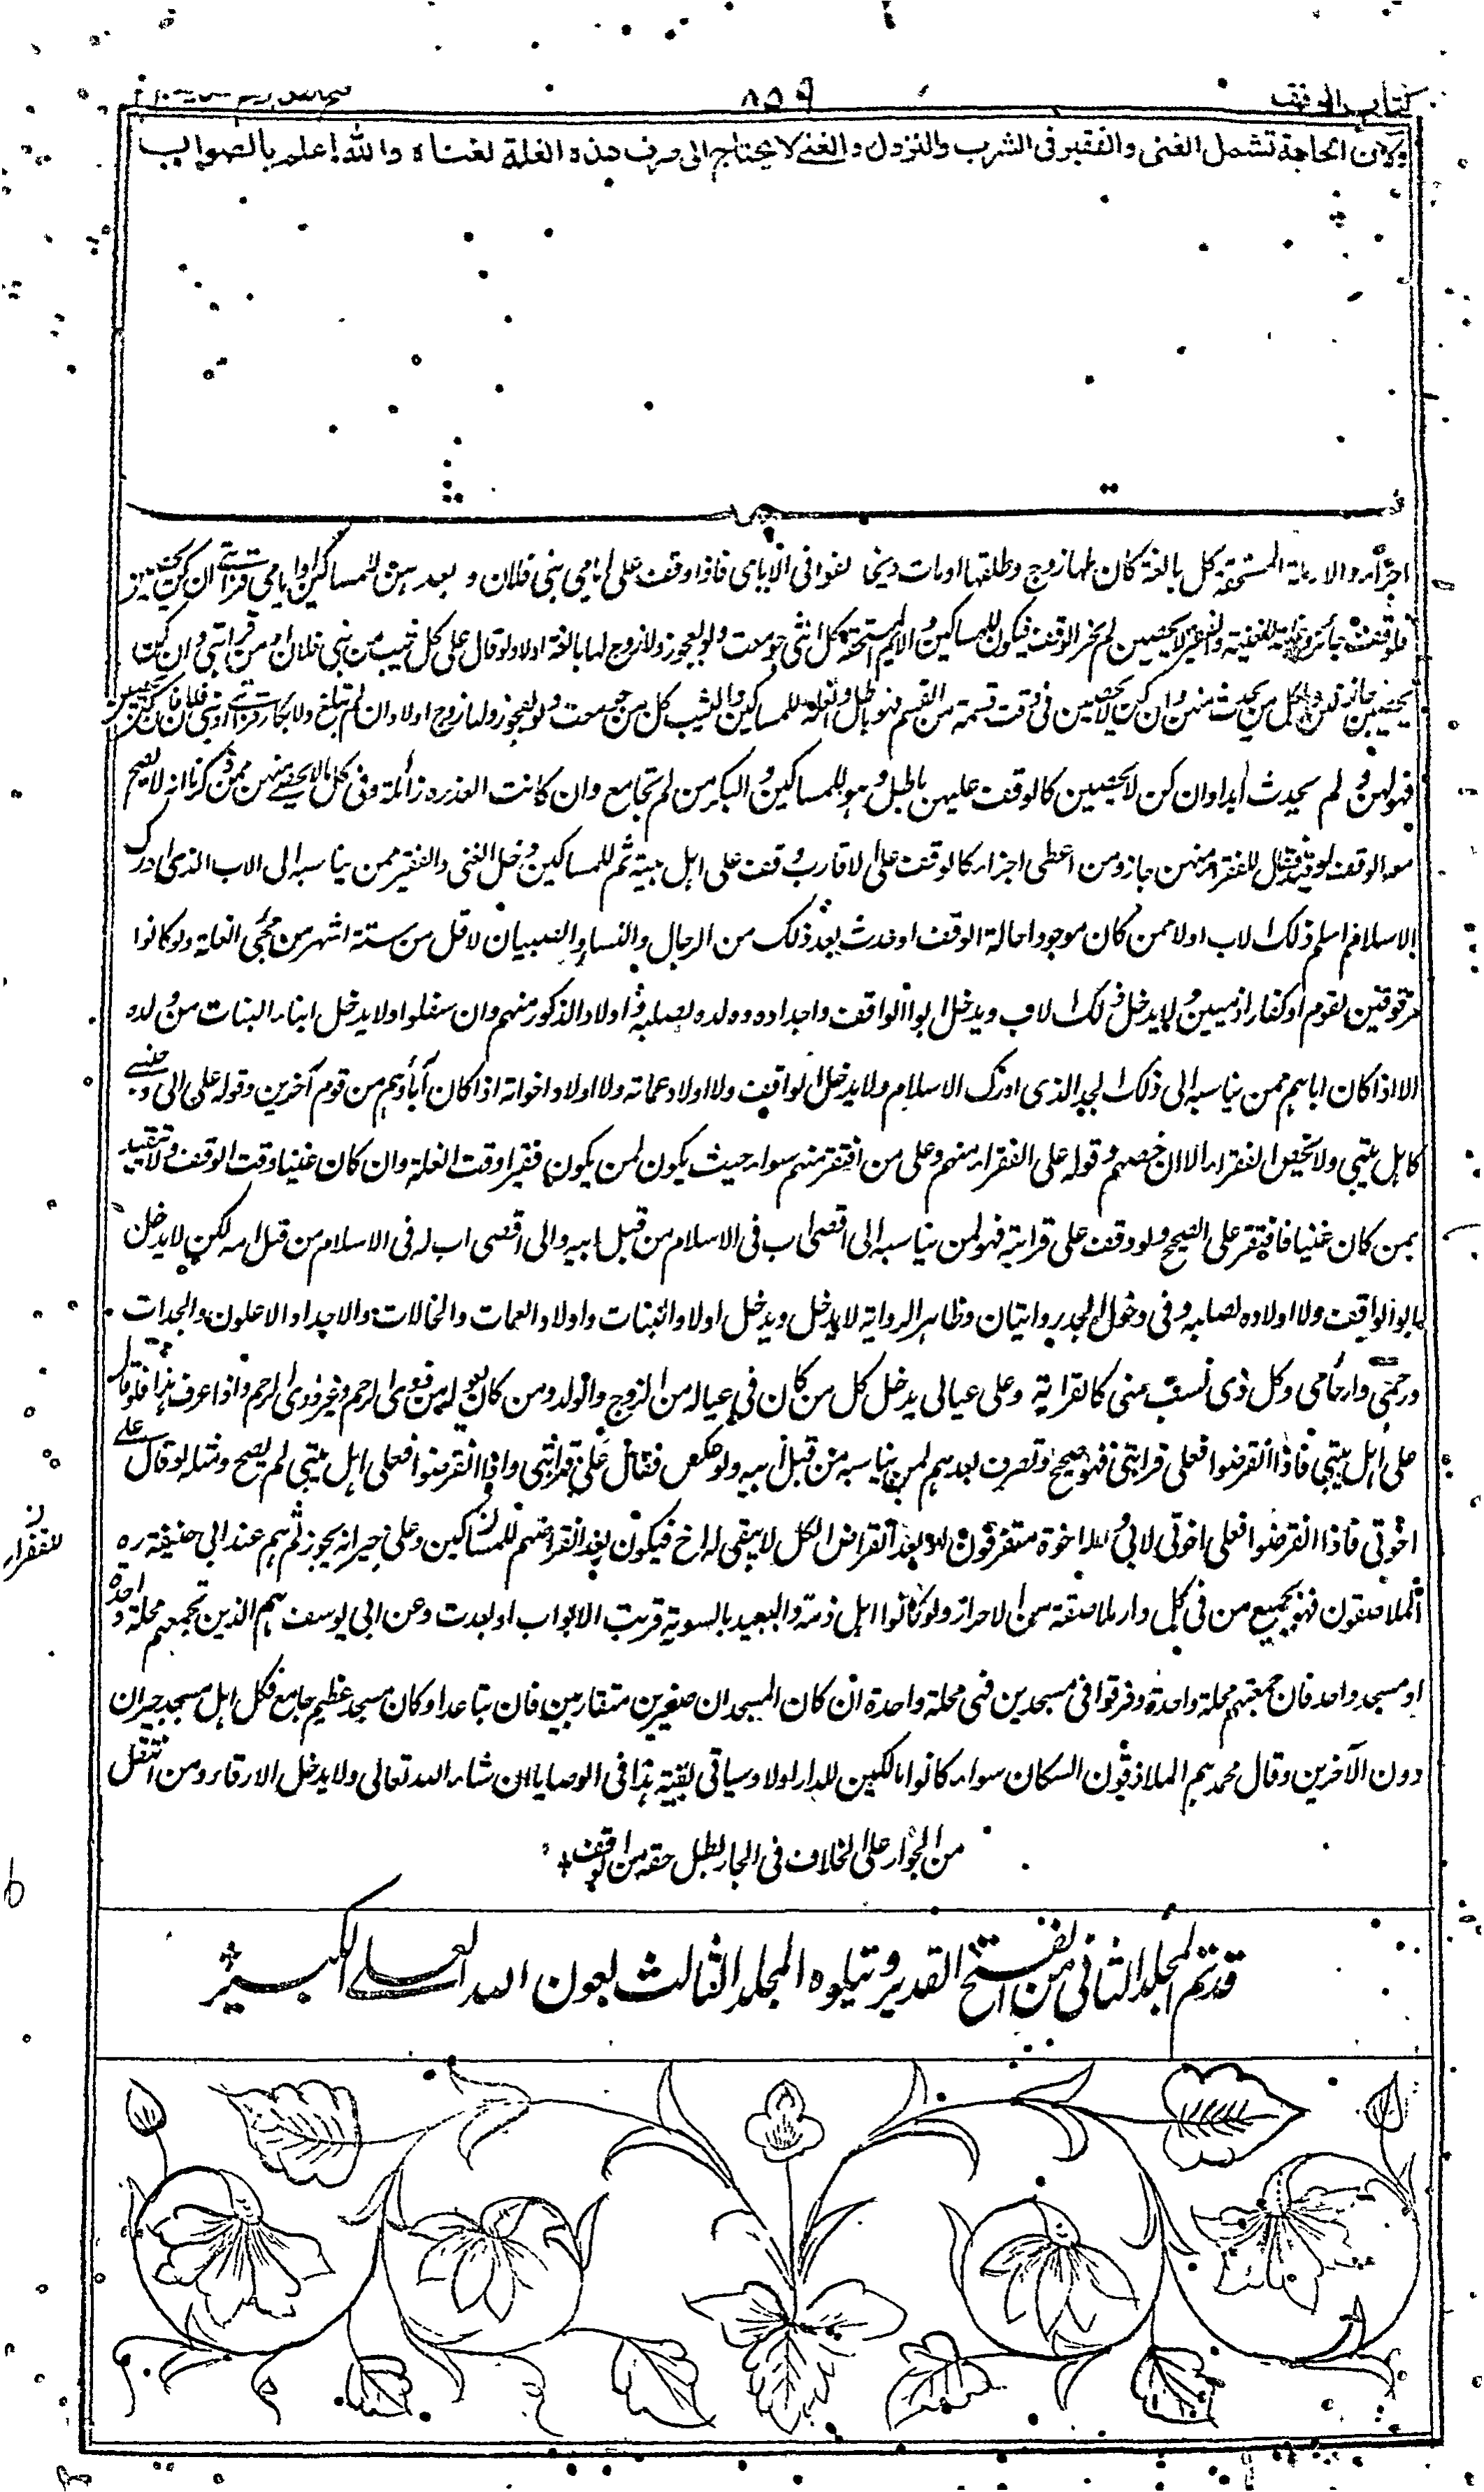 كتاب الوقف
٨٥٩
ولان الحاجة تشمل الغنى والفقير فى الشرب والنزول والغنى لا يحتاج الى صرف هذه الغلة لغناه والله اعلم بالصواب
اجزأه والارملة المستحقة كل بالغة كان لها زوج وطلقها او مات دخلوا فى الايامى فاذا وقف على ايامى بنى فلان و بعد هن للمساكين او ايامى قرابتى ان كن يحصين
فالوقف جائز للغنية والفقيرة لا يحصين لم يجز الوقف فيكون للمساكين والايم المستحقة كل انثى جومعت ولو بفجور ولا زوج لها بالغة اولا ولو قال على كل ثيب من بنى فلان او من قرابتى وان كن
يحصين جاز لكل من يحدث منهن وان كن لا يحصين فى وقت قسمة من القسم فهو باطل والغلة للمساكين والثيب كل من جومعت ولو بفجور ولها زوج اولا وان لم تبلغ ولابكار قرابتى او بنى فلان فان كن يحصين
فهو لهن ولم يحدث ابدا وان كن لا يحصين كالوقف عليهن باطل وهو للمساكين والبكر من لم تجامع وان كانت العذرة زائلة وفى كل مالا يحصى منهن ممن ذكرنا انه لا يصح
معه الوقف لو قال للفقراء منهن جاز ومن اعطى اجزاء كالوقف على الاقارب وقف على اهل بيته ثم للمساكين دخل الغنى والفقير ممن يناسبه الى الاب الذى ادرك
الاسلام اسلم ذلك الاب اولا ممن كان موجودا حالة الوقف او حدث بعد ذلك من الرجال والنساء والصبيان لاقل من ستة اشهر من مجئ الغلة ولو كانوا
مرقوقين لقوم او كفارا ذميين ولا يدخل ذلك الاب ويدخل ابو الواقف واجداده وولده لصلبه واولاد الذكور منهم وان سفلوا ولا يدخل ابناء البنات من ولده
الا اذا كان اباهم ممن يناسبه الى ذلك الجد الذى ادرك الاسلام ولا يدخل الواقف ولا اولاد عماته ولا اولاد اخواته اذا كان آباؤهم من قوم آخرين وقوله على الى وجنسى
كاهل بيتى ولا يخص الفقراء الا ان خصهم وقوله على الفقراء منهم وعلى من افتقر منهم سواء حيث يكون لمن يكون فقيرا وقت الغلة وان كان غنيا وقت الوقف ولا تتقيد
بمن كان غنيا فافتقر على الصحيح ولو وقف على قرابته فهو لمن يناسبه الى اقصى اب فى الاسلام من قبل ابيه والى اقصى اب له فى الاسلام من قبل امه لكن لا يدخل
ابو الواقف ولا اولاده لصلبه وفى دخول الجد روايتان وظاهر الرواية لا يدخل ويدخل اولاد البنات واولاد العمات والخالات والاجداد الاعلون والجدات
ورحمى وارحامى وكل ذى نسب منى كالقرابة وعلى عيالى يدخل كل من كان فى عياله من الزوج والولد ومن كان يعوله من ذوى الرحم وغير ذوى الرحم واذا عرف هذا فلو قال
على اهل بيتى فاذا انقرضوا فعلى قرابتى فهو صحيح وتصرف بعدهم لمن يناسبه من قبل ابيه ولو عكس فقال على قرابتى واذا انقرضوا فعلى اهل بيتى لم يصح ومثله لو قال على
اخوتى فاذا انقرضوا فعلى اخوتى لابى وله اخوة متفرقون لان بعد انقراض الكل لا يبقى له اخ فيكون بعد انقراضهم للمساكين وعلى جيرانه يجوز ثم هم عند ابى حنيفة ره
للفقراء
الملاصقون فهو بجميع من فى كل دار ملاصقة من الاحرار ولو كانوا اهل ذمة والبعيد بالسوية قربت الابواب او بعدت وعن ابى يوسف هم الذين تجمعهم محلة واحدة
او مسجد واحد فان جمعتهم محلة واحدة وفرقوا فى مسجدين فهى محلة واحدة ان كان المسجدان صغيرين متقاربين فان تباعدا وكان مسجد عظيم جامع فكل اهل مسجد جيران
دون الآخرين وقال محمد هم الملازقون السكان سواء كانوا مالكين للدار اولا وسياتى بقية هذا فى الوصايا ان شاء الله تعالى ولا يدخل الارقاء ومن انتقل
من الجوار على الخلاف فى الجار بطل حقه من الوقف
قد تم المجلد الثانى من الفتح القدير ويتلوه المجلد الثالث بعون الله العلى الكبير